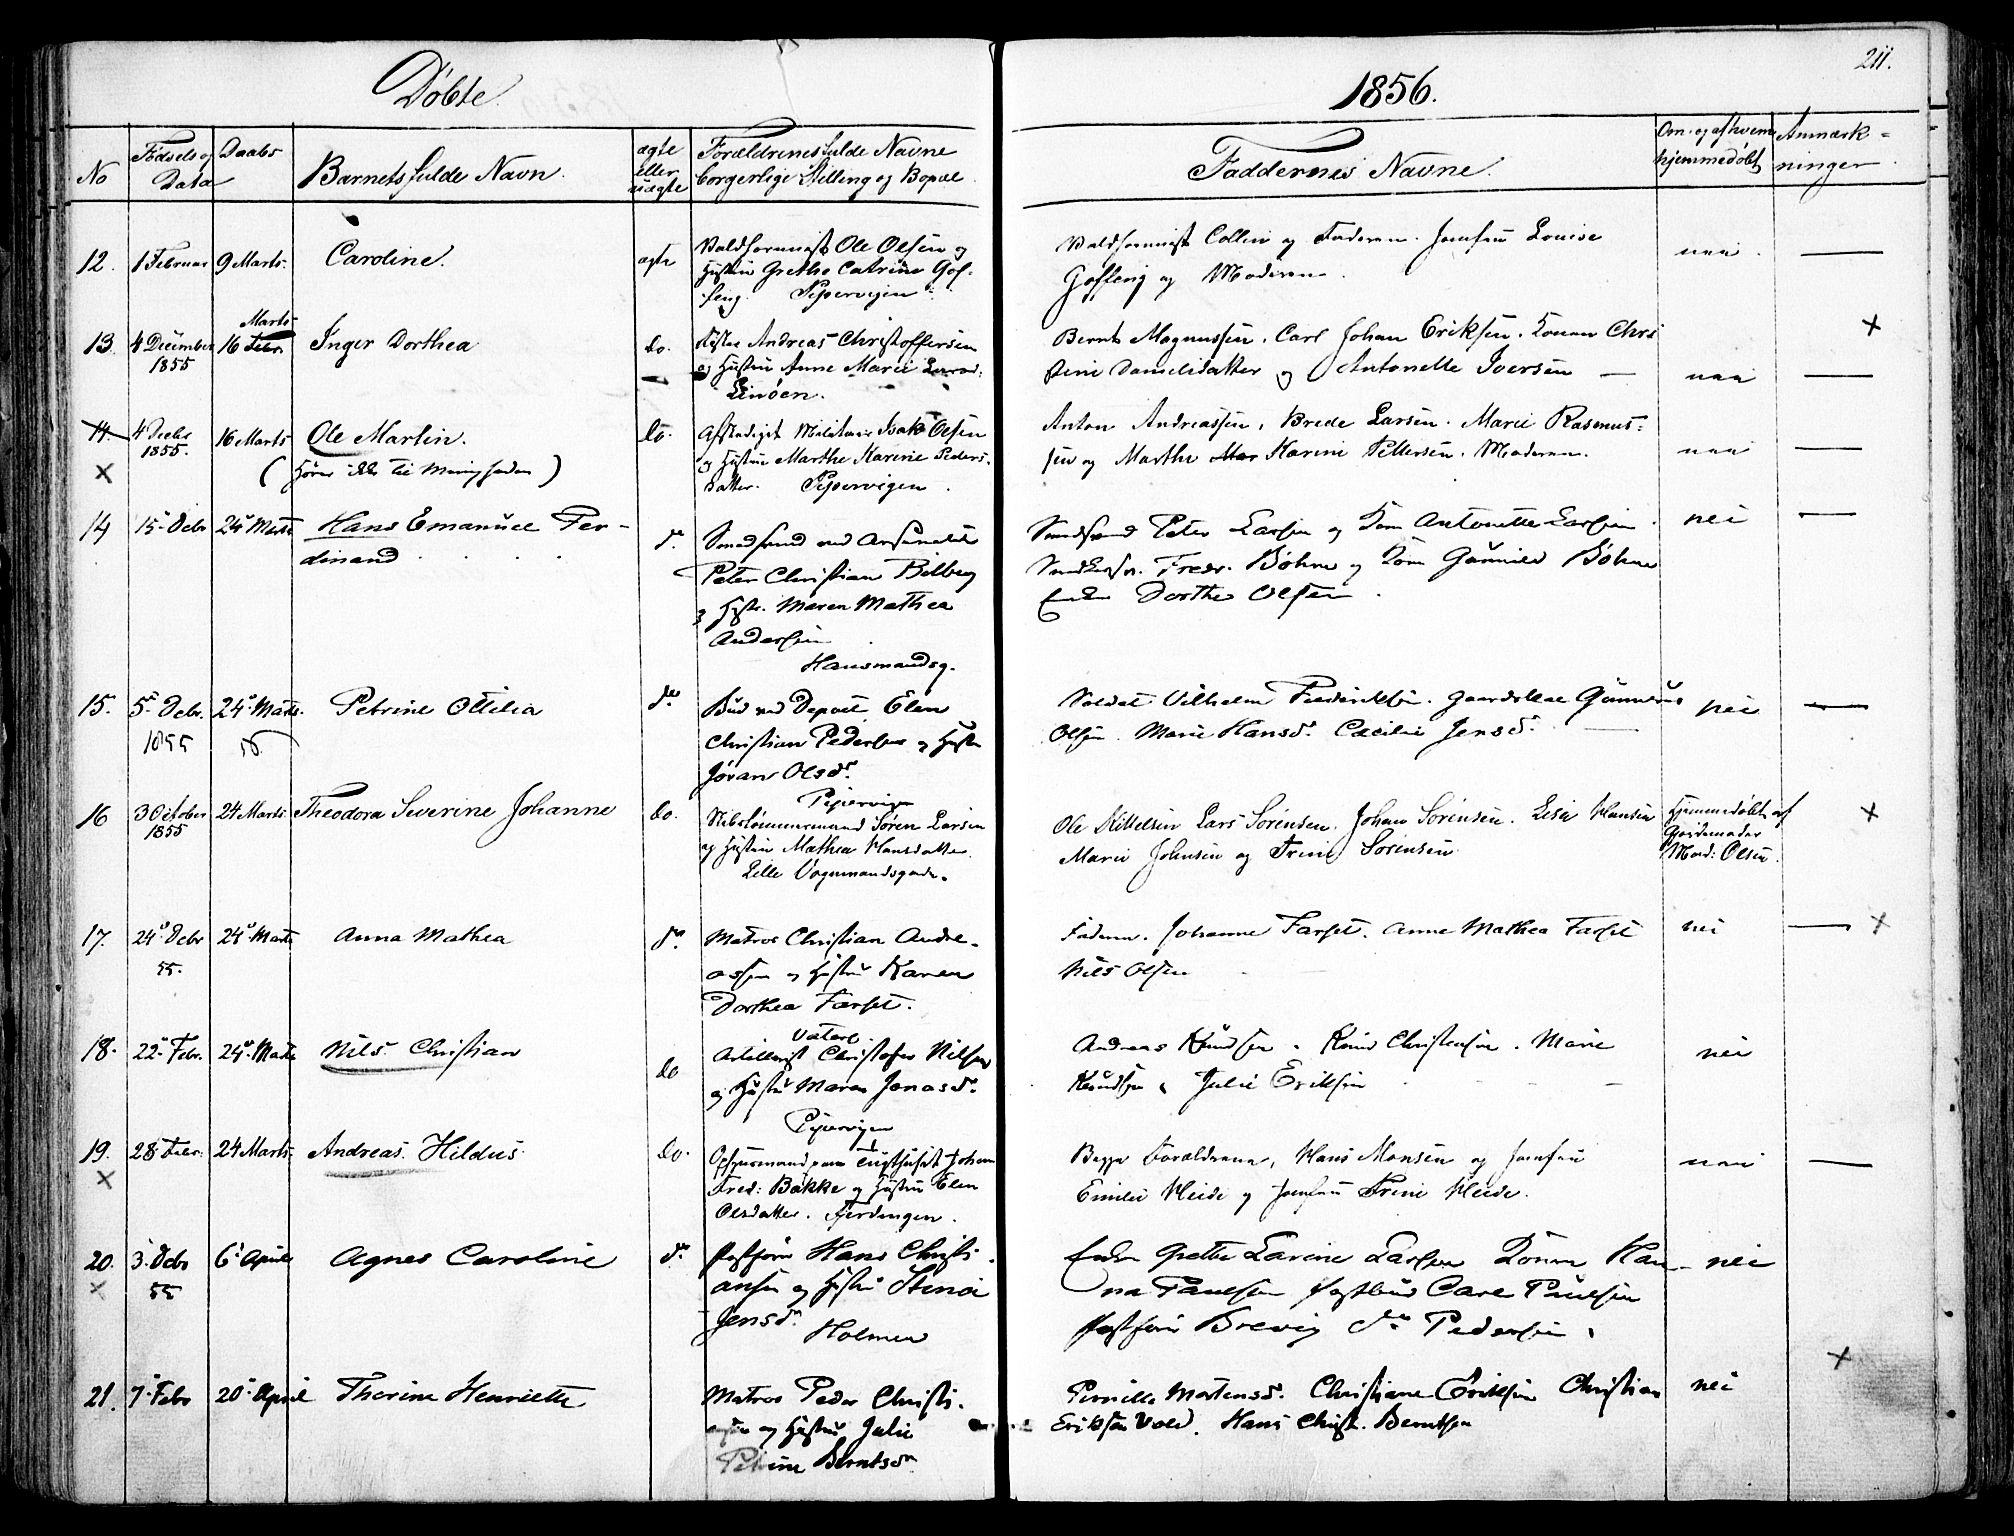 Døbte.
1856.
211.
No
Fødsels og Daabs
Data
Barnets fulde Navn.
ægte
eller
uægte
Forældrenes fulde Navne
borgerlige Stilling og Bopæl.
Faddernes Navne.
Om- og af hvem
hjemmedøbt
Anmærk-
ninger.
12. 1 Februar 9 Marts. Caroline. ægte
Ole Olsen og
Hustru Grethe Catrine Gof-
feng. Pipervigen
Collin og Faderen. Jomfru Louise
Goffeng og Moderen.
nei. —
13. 4 December 16 Febr. Marts Inger Dorthea do.
1855
Andreas Christoffersen
og Hustru Anne Marie
Bernt Magnussen, Carl Johan Eriksen. Konen Chri
stine Danielsdatter og Antonette Iversen —
nei —
14. 4 Decbr 16 Marts Ole Martin. do.
1855.
(Hører ikke til Menigheden)
Afskediget Militair Isak Olsen
og Hustru Marthe Karine Peders-
datter. Pipervigen.
Anton Andreassen, Brede Larsen. Marie Rasmus-
sen og Marthe Mar Karine Pettersen. Moderen.
nei —
14 15 Debr 24 Marts Hans Emanuel Fer-
dinand
do
ved Arsenalet
Peter Christian Bilberg
og Hstr. Maren Mathea
Andersen
Hansmandsg.
Peter Larsen og Kone Antonette Larsen.
Fredr. Bøhme og Kone Gunnild Bøhme
Enke Dorthe Olsen.
nei —
15. 5 Debr. 24 Marts. Petrine Ottilia do
1855 56
Bud ved Depotet Elen
Christian Pedersen og Hustru
Jøran Olsdr.
Pipervigen
Soldat Vilhelm Frederiksen. Gaardskar Gunnerus
Olsen. Marie Hansdr. Cæcilie Jensdr. —
nei —
16 3 October 24 Marts. Theodora Severine Johanne do.
1855
Skibstømmermand Søren Larsen
og Hustru Mathea Hansdatter.
Lille Vognmandsgade.
Ole Kittelsen Lars Sørensen. Johan Sørensen. Lisa Hansen
Marie Johnsen og Trine Sørensen
Hjemmedøbt af
Gjordemoder
Mad: Olsen.
17. 24 Debr 24 Marts Anna Mathea do
55.
Matros Christian Andre-
assen og Hustru Karen
Dorthea Farset.
Faderen. Johanne Farset. Anne Mathea Farset
Nils Olsen
nei —
18. 22 Febr. 24 Marts Nils Christian do
Artillerist Christofer Nilsen
og Hustru Maren Jonasdr.
Pipervigen
Andreas Knudsen. Knud Christensen. Marie
Knudsen, Julie Eriksen
nei
19. 28 Febr. 24 Marts. Andreas Hildus do.
Opsynsmand paa Tugthuset Johan
Fred: Bakke og Hustru Elen
Olsdatter. Fjerdingen.
Begge Forældrene, Hans Monsen og Jomfru
Emilie Heide og Jomfru Trine Heide.
nei —
20. 3 Debr 6 April Agnes Caroline do
55
Hans Christi
ansen og Hustru Stina
Jensdr.
Holmen
Enke Grethe Larine Larsen Konen Han-
na Paulsen Postbud Carl Paulsen
Brevig do Pedersen.
nei
21. 7 Febr 20 April Therine Henriette
Matros Peder Christi-
ansen og Hustru Julie
Petrine Berntsdr
Pernille Mortensd. Christiane Eriksen Christian
Eriksen Vold. Hans Christ. Berntsen
nei